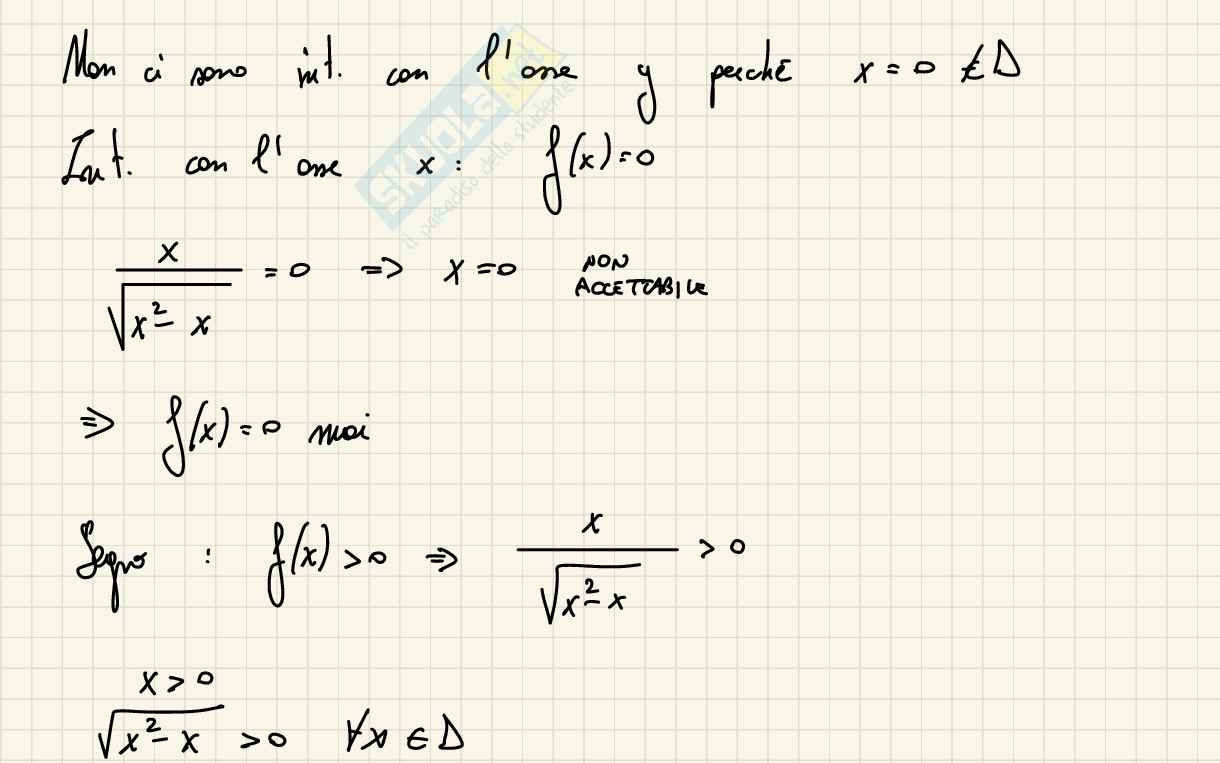 Non ci sono int. con l'asse y perché x = 0 ∉ D
Int. con l'asse x : f(x) = 0
x / √(x² - x) = 0 => x = 0 NON ACCETTABILE
=> f(x) = 0 mai
Segno : f(x) > 0 => x / √(x² - x) > 0
x > 0
√(x² - x) > 0 ∀x ∈ D
SKUOLA.net
il paradiso dello studente